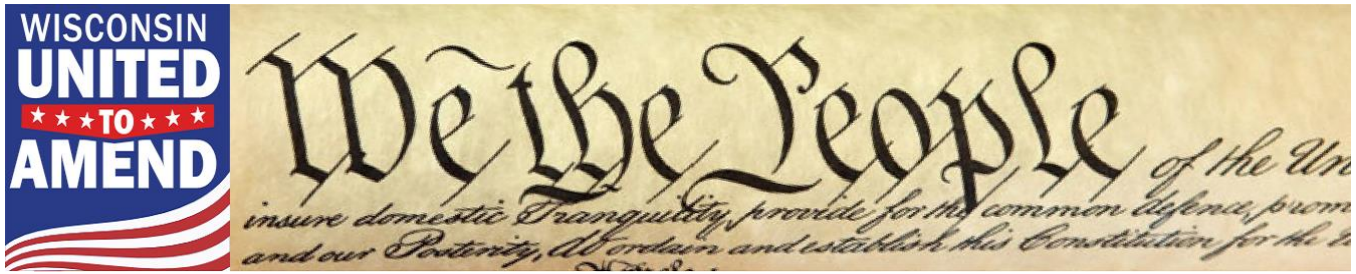 WISCONSIN
UNITED
TO
AMEND
We the People
of the Un
insure domestic Tranquility, provide for the common defence, prom
and our Posterity, do ordain and establish this Constitution for the